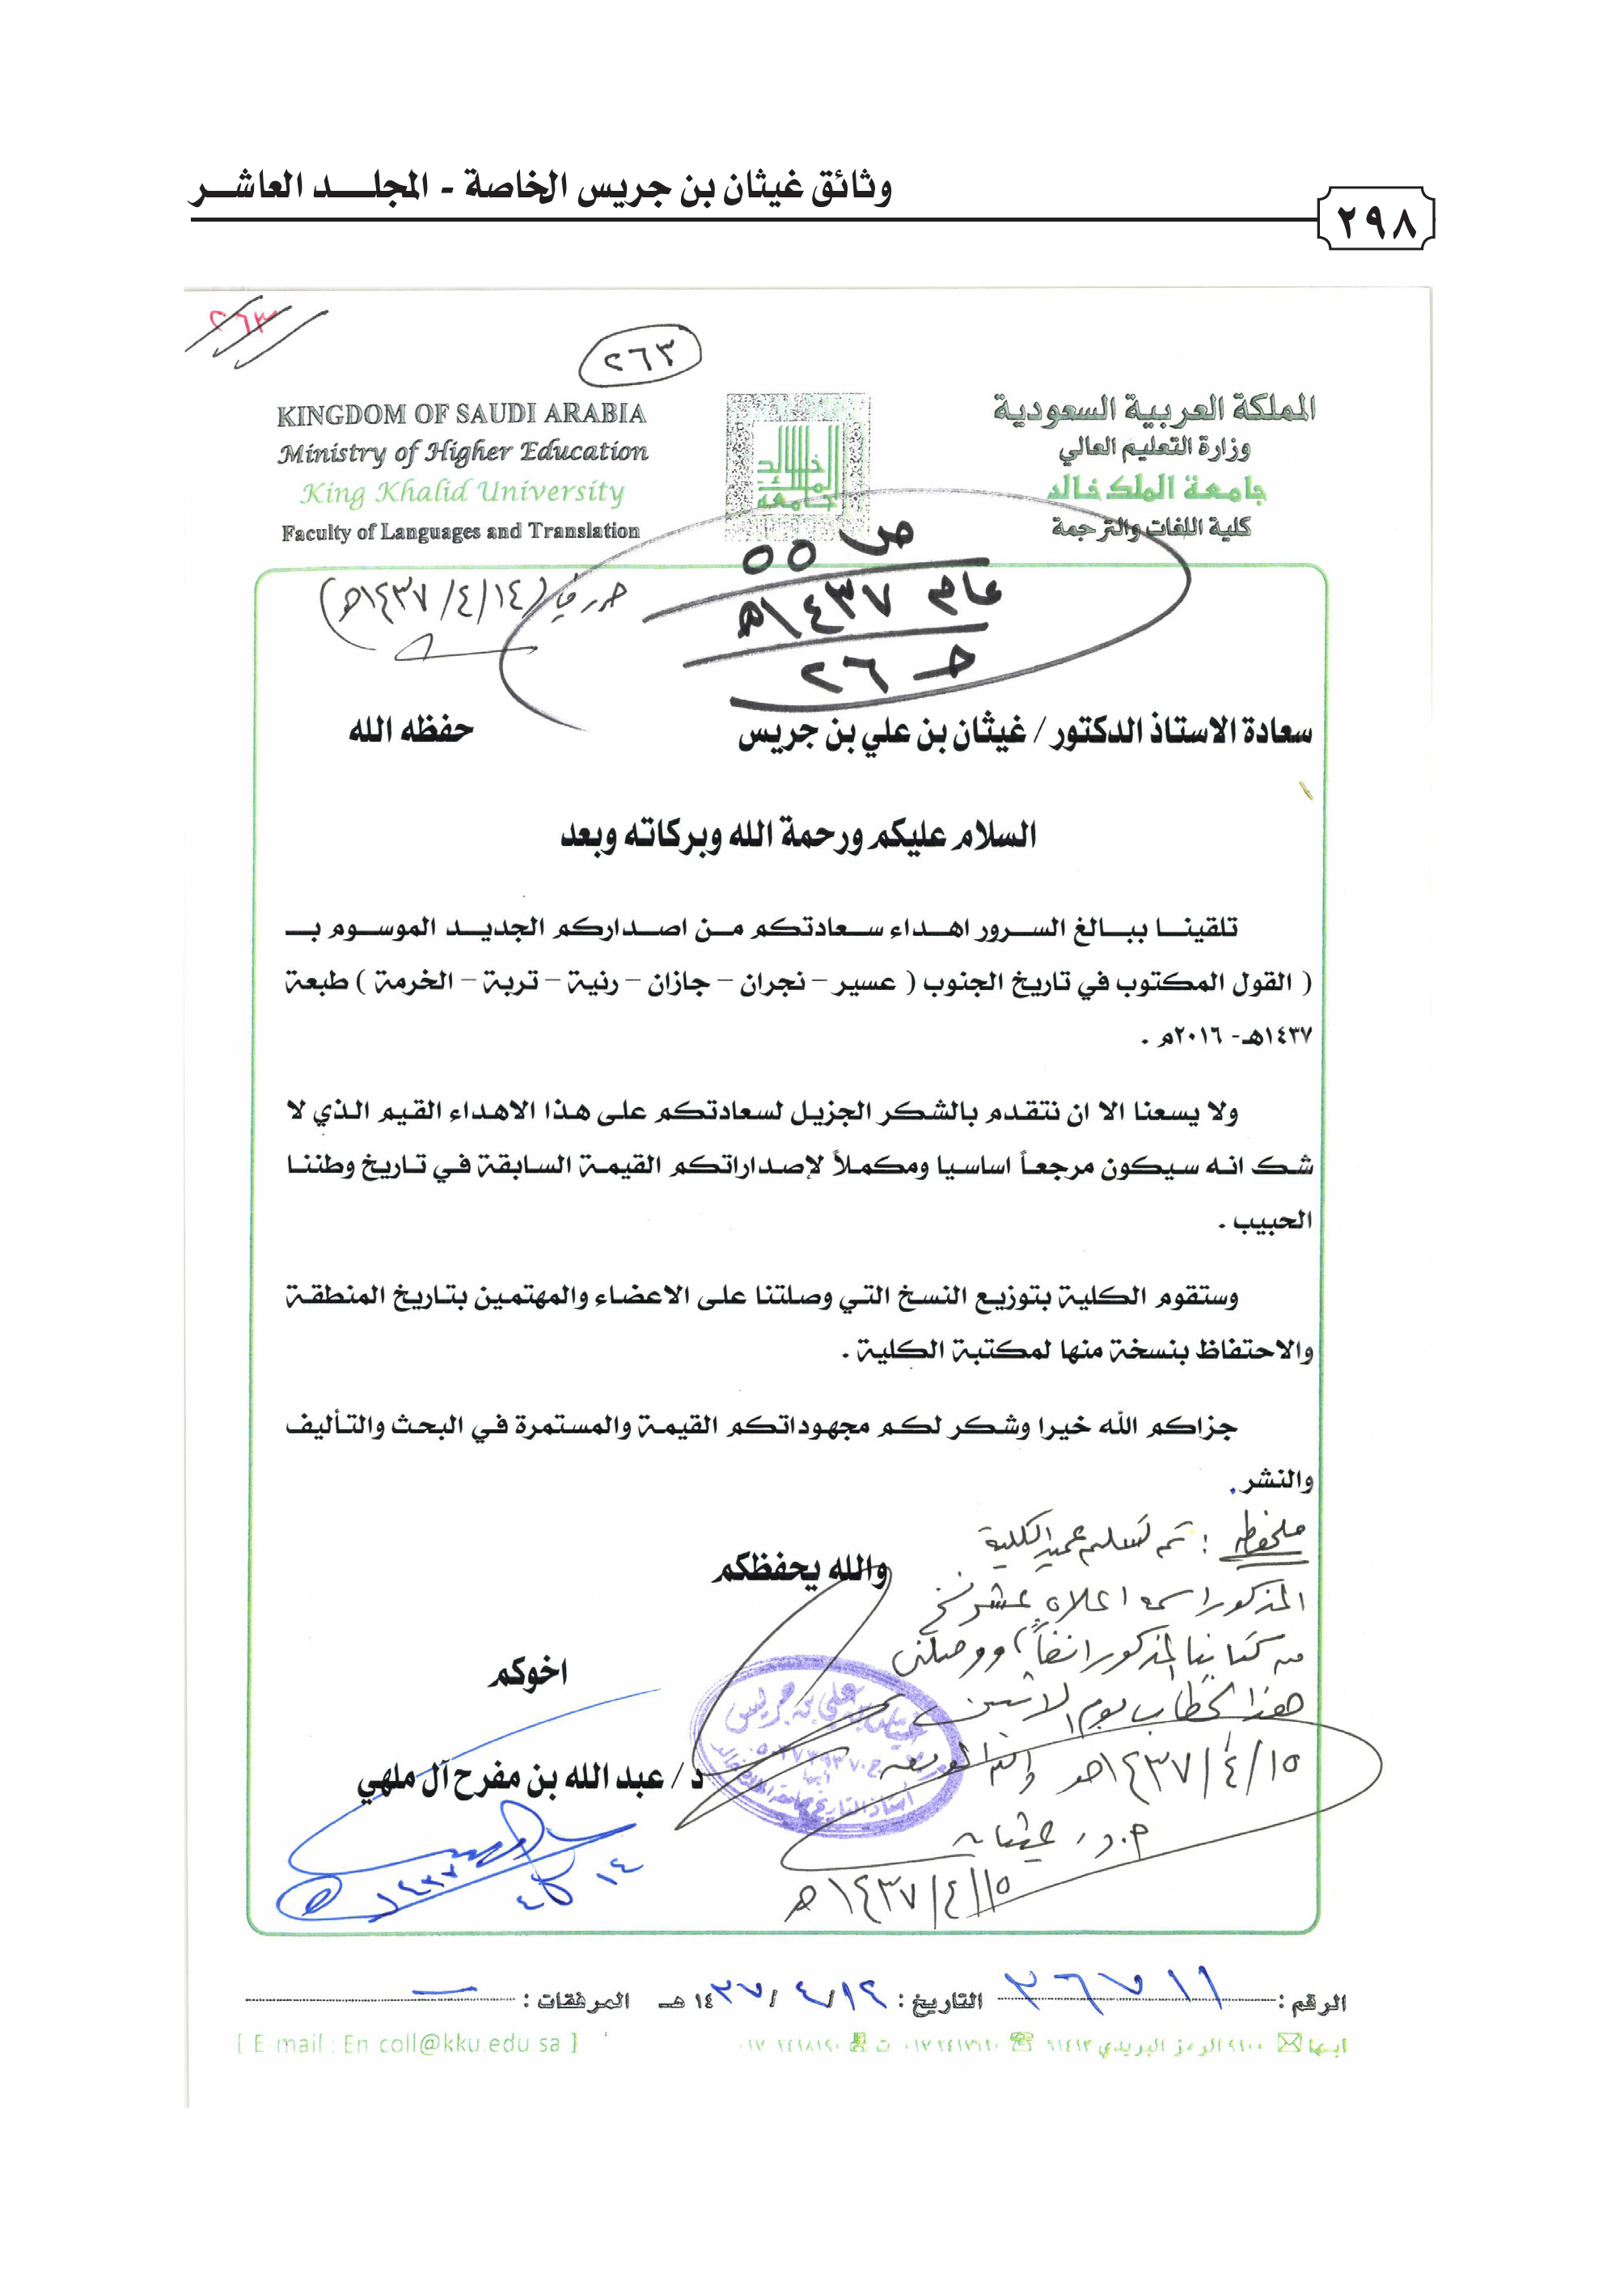 وثائق غيثان بن جريس الخاصة - المجلـــد العاشـــر
٢٩٨
٢٦٣
٢٦٣
KINGDOM OF SAUDI ARABIA
Ministry of Higher Education
King Khalid University
Faculty of Languages and Translation
المملكة العربية السعودية
وزارة التعليم العالي
جامعة الملك خالد
كلية اللغات والترجمة
ص ٥٥
عام ١٤٣٧هـ
حـ ٢٦
(١٤/٤/١٤٣٧هـ)
سعادة الاستاذ الدكتور / غيثان بن علي بن جريس حفظه الله
السلام عليكم ورحمة الله وبركاته وبعد
تلقينـا ببـالغ السـرور اهـداء سـعادتكم مـن اصـداركم الجديـد الموسـوم بـ
( القول المكتوب في تاريخ الجنوب ( عسير – نجران – جازان – رنية – تربة – الخرمة ) طبعة
١٤٣٧هـ- ٢٠١٦م .
ولا يسعنا الا ان نتقدم بالشكر الجزيل لسعادتكم على هذا الاهداء القيم الذي لا
شك انه سيكون مرجعاً اساسيا ومكملاً لإصداراتكم القيمة السابقة في تاريخ وطننا
الحبيب .
وستقوم الكلية بتوزيع النسخ التي وصلتنا على الاعضاء والمهتمين بتاريخ المنطقة
والاحتفاظ بنسخة منها لمكتبة الكلية .
جزاكم الله خيرا وشكر لكم مجهوداتكم القيمة والمستمرة في البحث والتأليف
والنشر.
ملحوظة : تم تسليم عميد الكلية
المذكور اسمه اعلاه عشر نسخ
من كتابنا المذكور انفاً، ووصلني
هذا الخطاب يوم الاثنين
١٥/٤/١٤٣٧هـ والله الموفق
أ.د. غيثان
١٥/٤/١٤٣٧هـ
والله يحفظكم
اخوكم
د/ عبد الله بن مفرح آل ملهي
١٤٣٧هـ
علي بن جريس
أبها
أستاذ التاريخ بجامعة الملك خالد
الرقم : ٢٦٧١١ التاريخ : ١٤/٤/١٤٣٧هـ المرفقات : —
ابها ٩١٠٠ الرمز البريدي ٦١٤١٣
[ E-mail : En coll@kku.edu.sa ]